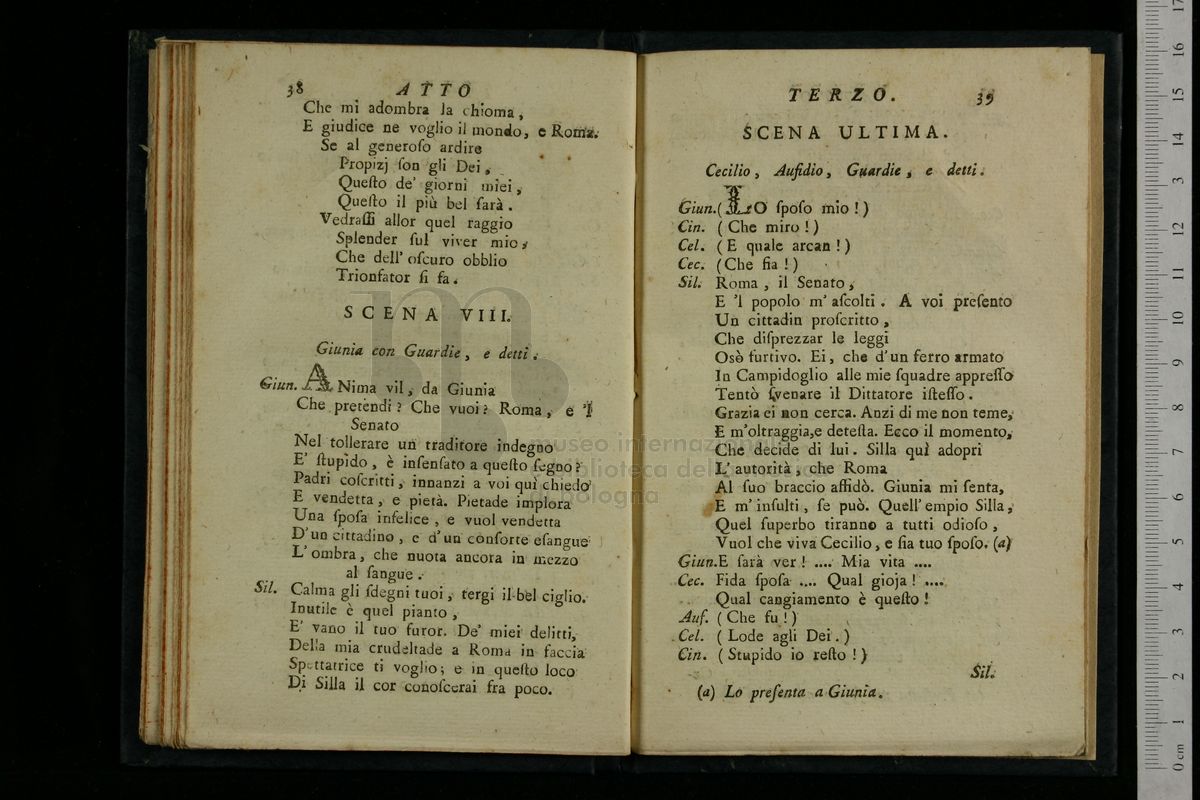 38 ATTO
Che mi adombra la chioma,
E giudice ne voglio il mondo, e Roma.
Se al generoſo ardire
Propizj ſon gli Dei,
Queſto de' giorni miei,
Queſto il più bel ſarà.
Vedraſſi allor quel raggio
Splender ſul viver mio,
Che dell' oſcuro obblio
Trionfator ſi fa.
SCENA VIII.
Giunia con Guardie, e detti.
Giun. ANima vil, da Giunia
Che pretendi? Che vuoi? Roma, e 'l
Senato
Nel tollerare un traditore indegno
E' ſtupido, è inſenſato a queſto ſegno?
Padri coſcritti, innanzi a voi quì chiedo
E vendetta, e pietà. Pietade implora
Una ſpoſa infelice, e vuol vendetta
D'un cittadino, e d'un conſorte eſangue
L'ombra, che nuota ancora in mezzo
al ſangue.
Sil. Calma gli ſdegni tuoi, tergi il bel ciglio.
Inutile è quel pianto,
E' vano il tuo furor. De' miei delitti,
Della mia crudeltade a Roma in faccia
Spettatrice ti voglio; e in queſto loco
Di Silla il cor conoſcerai fra poco.
TERZO. 39
SCENA ULTIMA.
Cecilio, Aufidio, Guardie, e detti.
Giun. (LO ſpoſo mio!)
Cin. (Che miro!)
Cel. (E quale arcan!)
Cec. (Che fia!)
Sil. Roma, il Senato,
E 'l popolo m' aſcolti. A voi preſento
Un cittadin proſcritto,
Che diſprezzar le leggi
Osò furtivo. Ei, che d'un ferro armato
In Campidoglio alle mie ſquadre appreſſo
Tentò ſvenare il Dittatore iſteſſo.
Grazia ei non cerca. Anzi di me non teme,
E m'oltraggia, e deteſta. Ecco il momento,
Che decide di lui. Silla quì adopri
L' autorità, che Roma
Al ſuo braccio affidò. Giunia mi ſenta,
E m' inſulti, ſe può. Quell' empio Silla,
Quel ſuperbo tiranno a tutti odioſo,
Vuol che viva Cecilio, e ſia tuo ſpoſo. (a)
Giun. E ſarà ver! .... Mia vita ....
Cec. Fida ſpoſa .... Qual gioja! ....
Qual cangiamento è queſto!
Auf. (Che fu!)
Cel. (Lode agli Dei.)
Cin. (Stupido io reſto!)
Sil.
(a) Lo preſenta a Giunia.
museo internazionale
biblioteca della
di bologna
0 cm 1 2 3 4 5 6 7 8 9 10 11 12 13 14 15 16 17